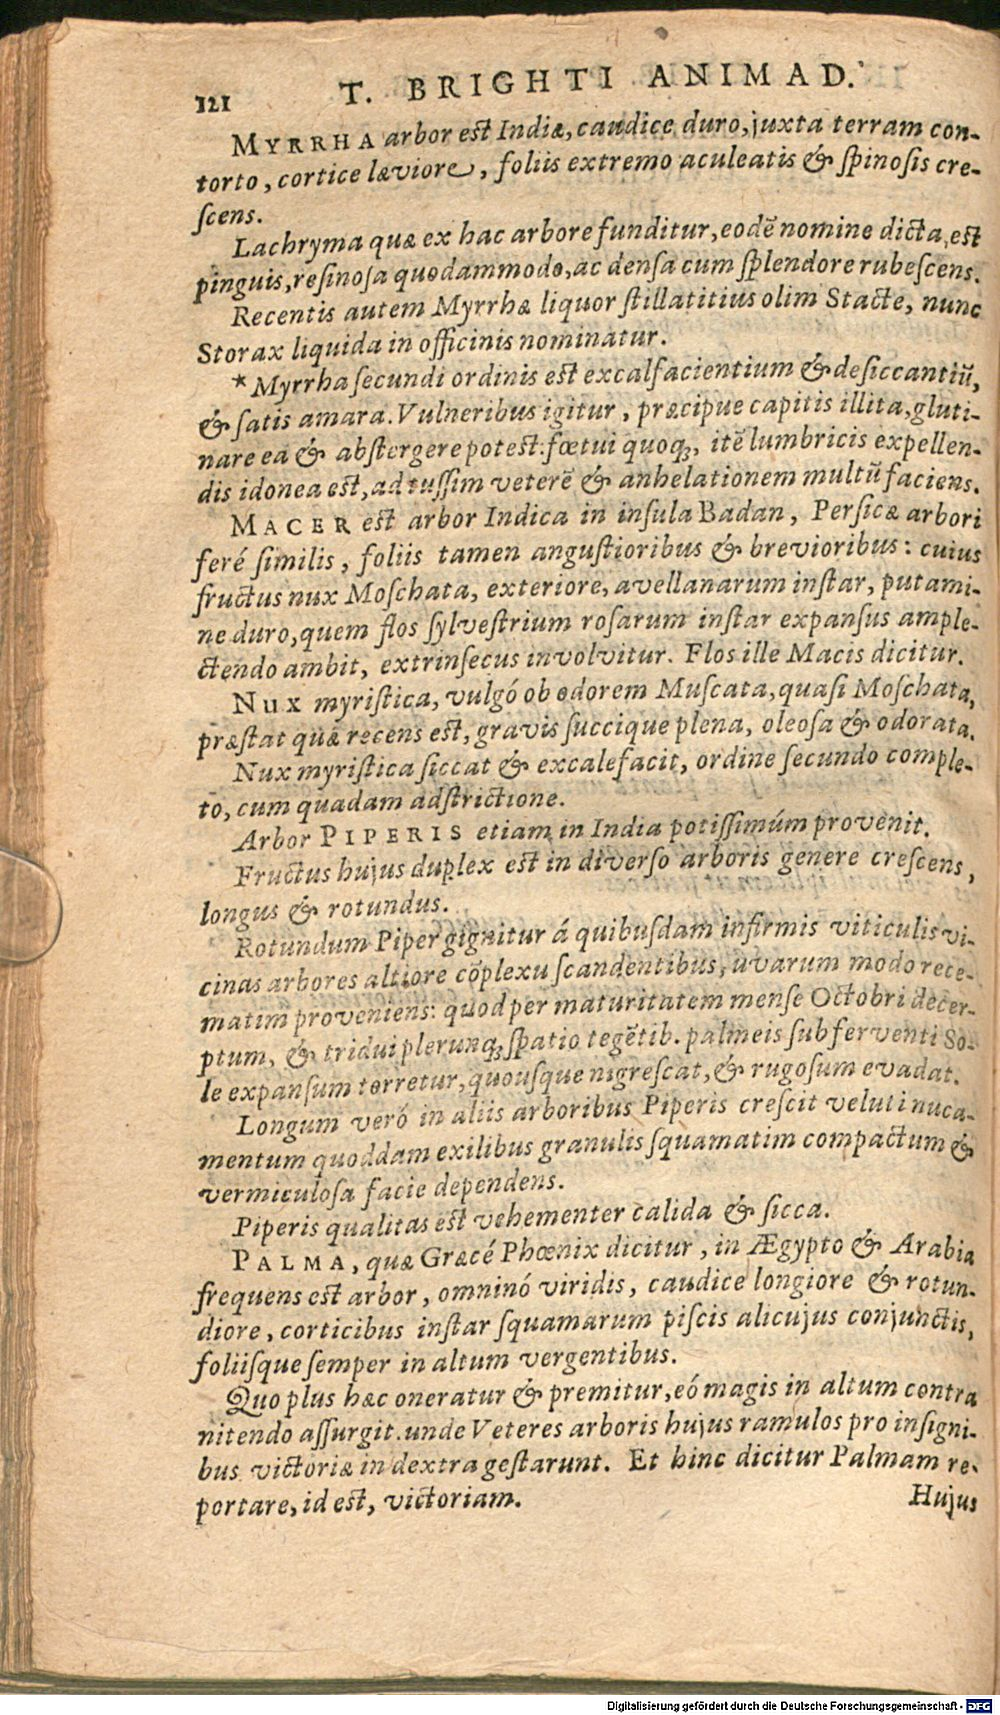 121 T. BRIGHTI ANIMAD.
MYRRHA arbor est Indiæ, caudice duro, juxta terram con-
torto, cortice læviore, foliis extremo aculeatis & spinosis cre-
scens.
Lachryma quæ ex hac arbore funditur, eodē nomine dicta, est
pinguis, resinosa quodammodo, ac densa cum splendore rubescens.
Recentis autem Myrrhæ liquor stillatitius olim Stacte, nunc
Storax liquida in officinis nominatur.
*Myrrha secundi ordinis est excalfacientium & desiccantiū,
& satis amara. Vulneribus igitur, præcipue capitis illita, gluti-
nare ea & abstergere potest: fœtui quoqꝫ, itē lumbricis expellen-
dis idonea est, ad tussim veterē & anhelationem multū faciens.
MACER est arbor Indica in insula Badan, Persicæ arbori
feré similis, foliis tamen angustioribus & brevioribus: cuius
fructus nux Moschata, exteriore, avellanarum instar, putami-
ne duro, quem flos sylvestrium rosarum instar expansus ample-
ctendo ambit, extrinsecus involvitur. Flos ille Macis dicitur.
NUX myristica, vulgó ob odorem Muscata, quasi Moschata,
præstat quæ recens est, gravis succique plena, oleosa & odorata.
Nux myristica siccat & excalefacit, ordine secundo comple-
to, cum quadam adstrictione.
Arbor PIPERIS etiam in India potissimúm provenit.
Fructus hujus duplex est in diverso arboris genere crescens,
longus & rotundus.
Rotundum Piper gignitur á quibusdam infirmis viticulis vi-
cinas arbores altiore cōplexu scandentibus, uvarum modo race-
matim proveniens: quod per maturitatem mense Octobri decer-
ptum, & tridui plerunqꝫ spatio tegētib. palmeis sub ferventi So-
le expansum torretur, quousque nigrescat, & rugosum evadat.
Longum veró in aliis arboribus Piperis crescit veluti nuca-
mentum quoddam exilibus granulis squamatim compactum &
vermiculosa facie dependens.
Piperis qualitas est vehementer calida & sicca.
PALMA, quæ Græcé Phœnix dicitur, in Ægypto & Arabia
frequens est arbor, omninó viridis, caudice longiore & rotun-
diore, corticibus instar squamarum piscis alicujus conjunctis,
foliisque semper in altum vergentibus.
Quo plus hæc oneratur & premitur, eó magis in altum contra
nitendo assurgit. unde Veteres arboris hujus ramulos pro insigni-
bus victoriæ in dextra gestarunt. Et hinc dicitur Palmam re-
portare, id est, victoriam.
Hujus
Digitalisierung gefördert durch die Deutsche Forschungsgemeinschaft - DFG